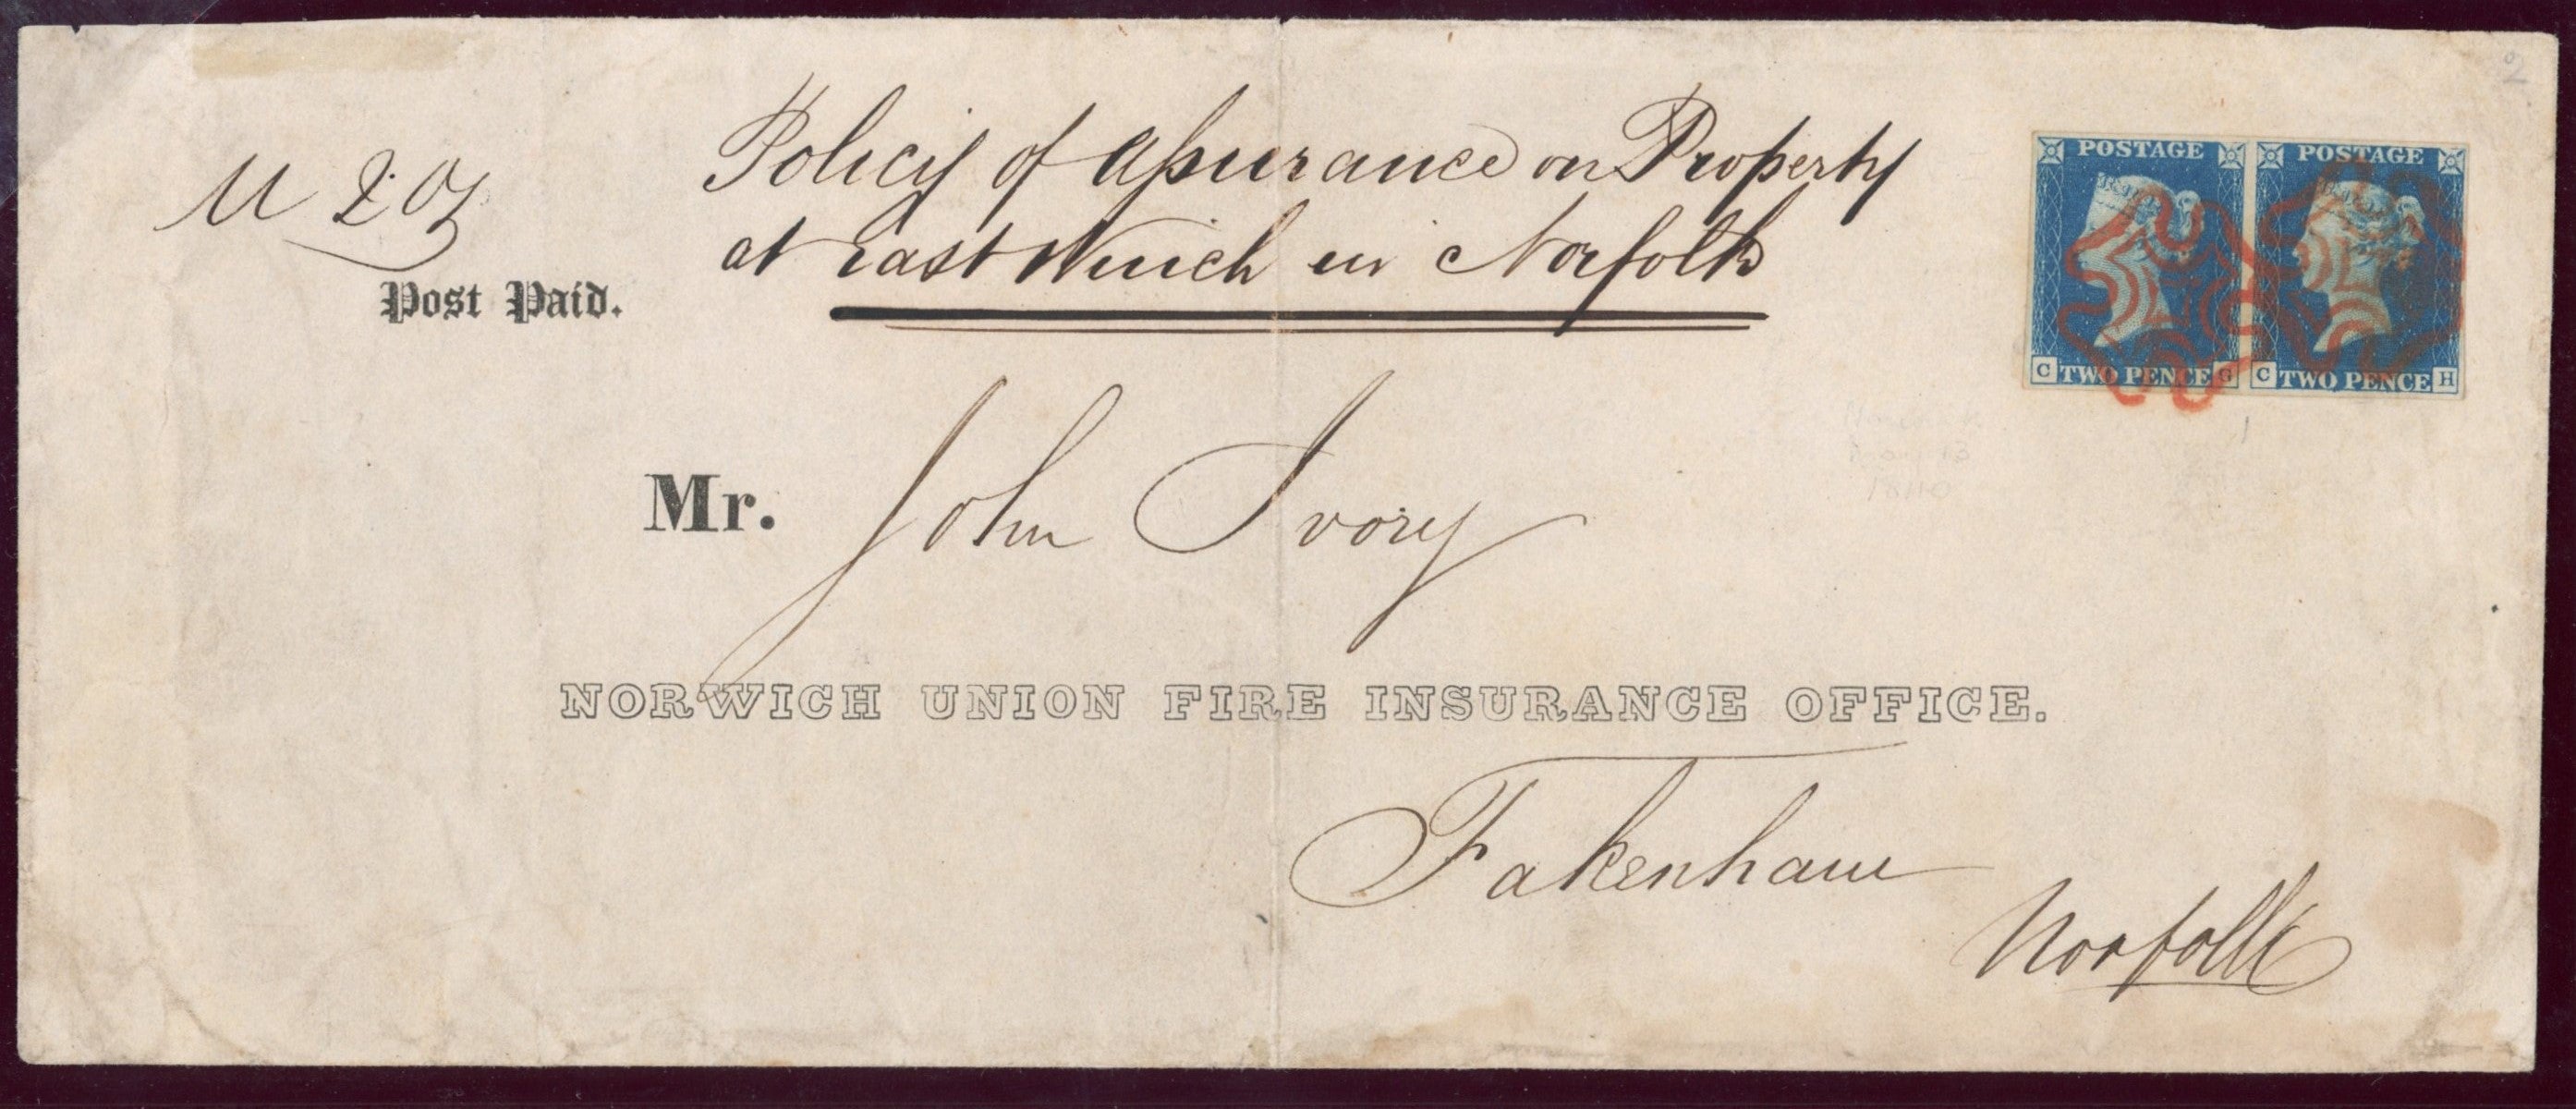 U 2 Oz
Post Paid.
Policy of Aſsurance on Property
at East Winch in Norfolk
POSTAGE
C TWO PENCE G
POSTAGE
C TWO PENCE H
2
Mr. John Ivory
NORWICH UNION FIRE INSURANCE OFFICE.
Fakenham
Norfolk